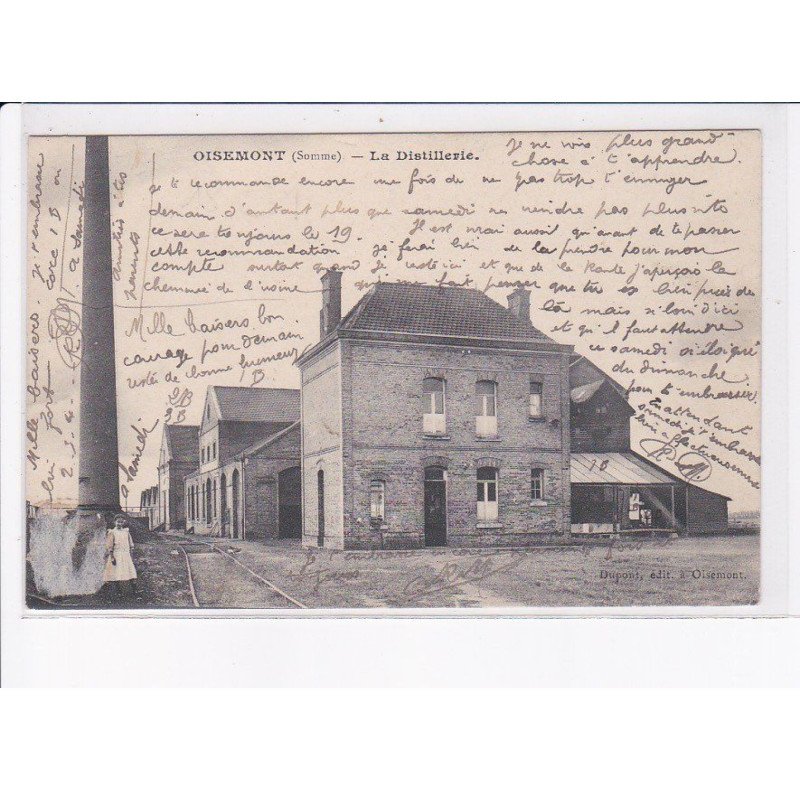 OISEMONT (Somme) — La Distillerie.
Je ne vois plus grand
chose à t'apprendre.
Je te recommande encore une fois de ne pas trop t'ennuyer
demain d'autant plus que samedi ne viendra pas plus vite
ce sera toujours le 19. Il est vrai aussi qu'avant de te passer
cette recommandation je ferai bien de la prendre pour mon
compte surtout quand je reste ici et que de la carte j'aperçois la
cheminée de l'usine qui me fait penser que tu es bien près de
là mais si loin d'ici
et qu'il faut attendre
ce samedi si éloigné
du dimanche
pour t'embrasser.
En attendant
samedi je t'embrasse
bien affectueusement
Mille baisers bon
courage pour demain
reste de bonne humeur
à Samedi
Mille baisers. Je t'embrasse
bien fort
à Samedi
amitiés à tes
parents
Dupont, édit. à Oisemont.